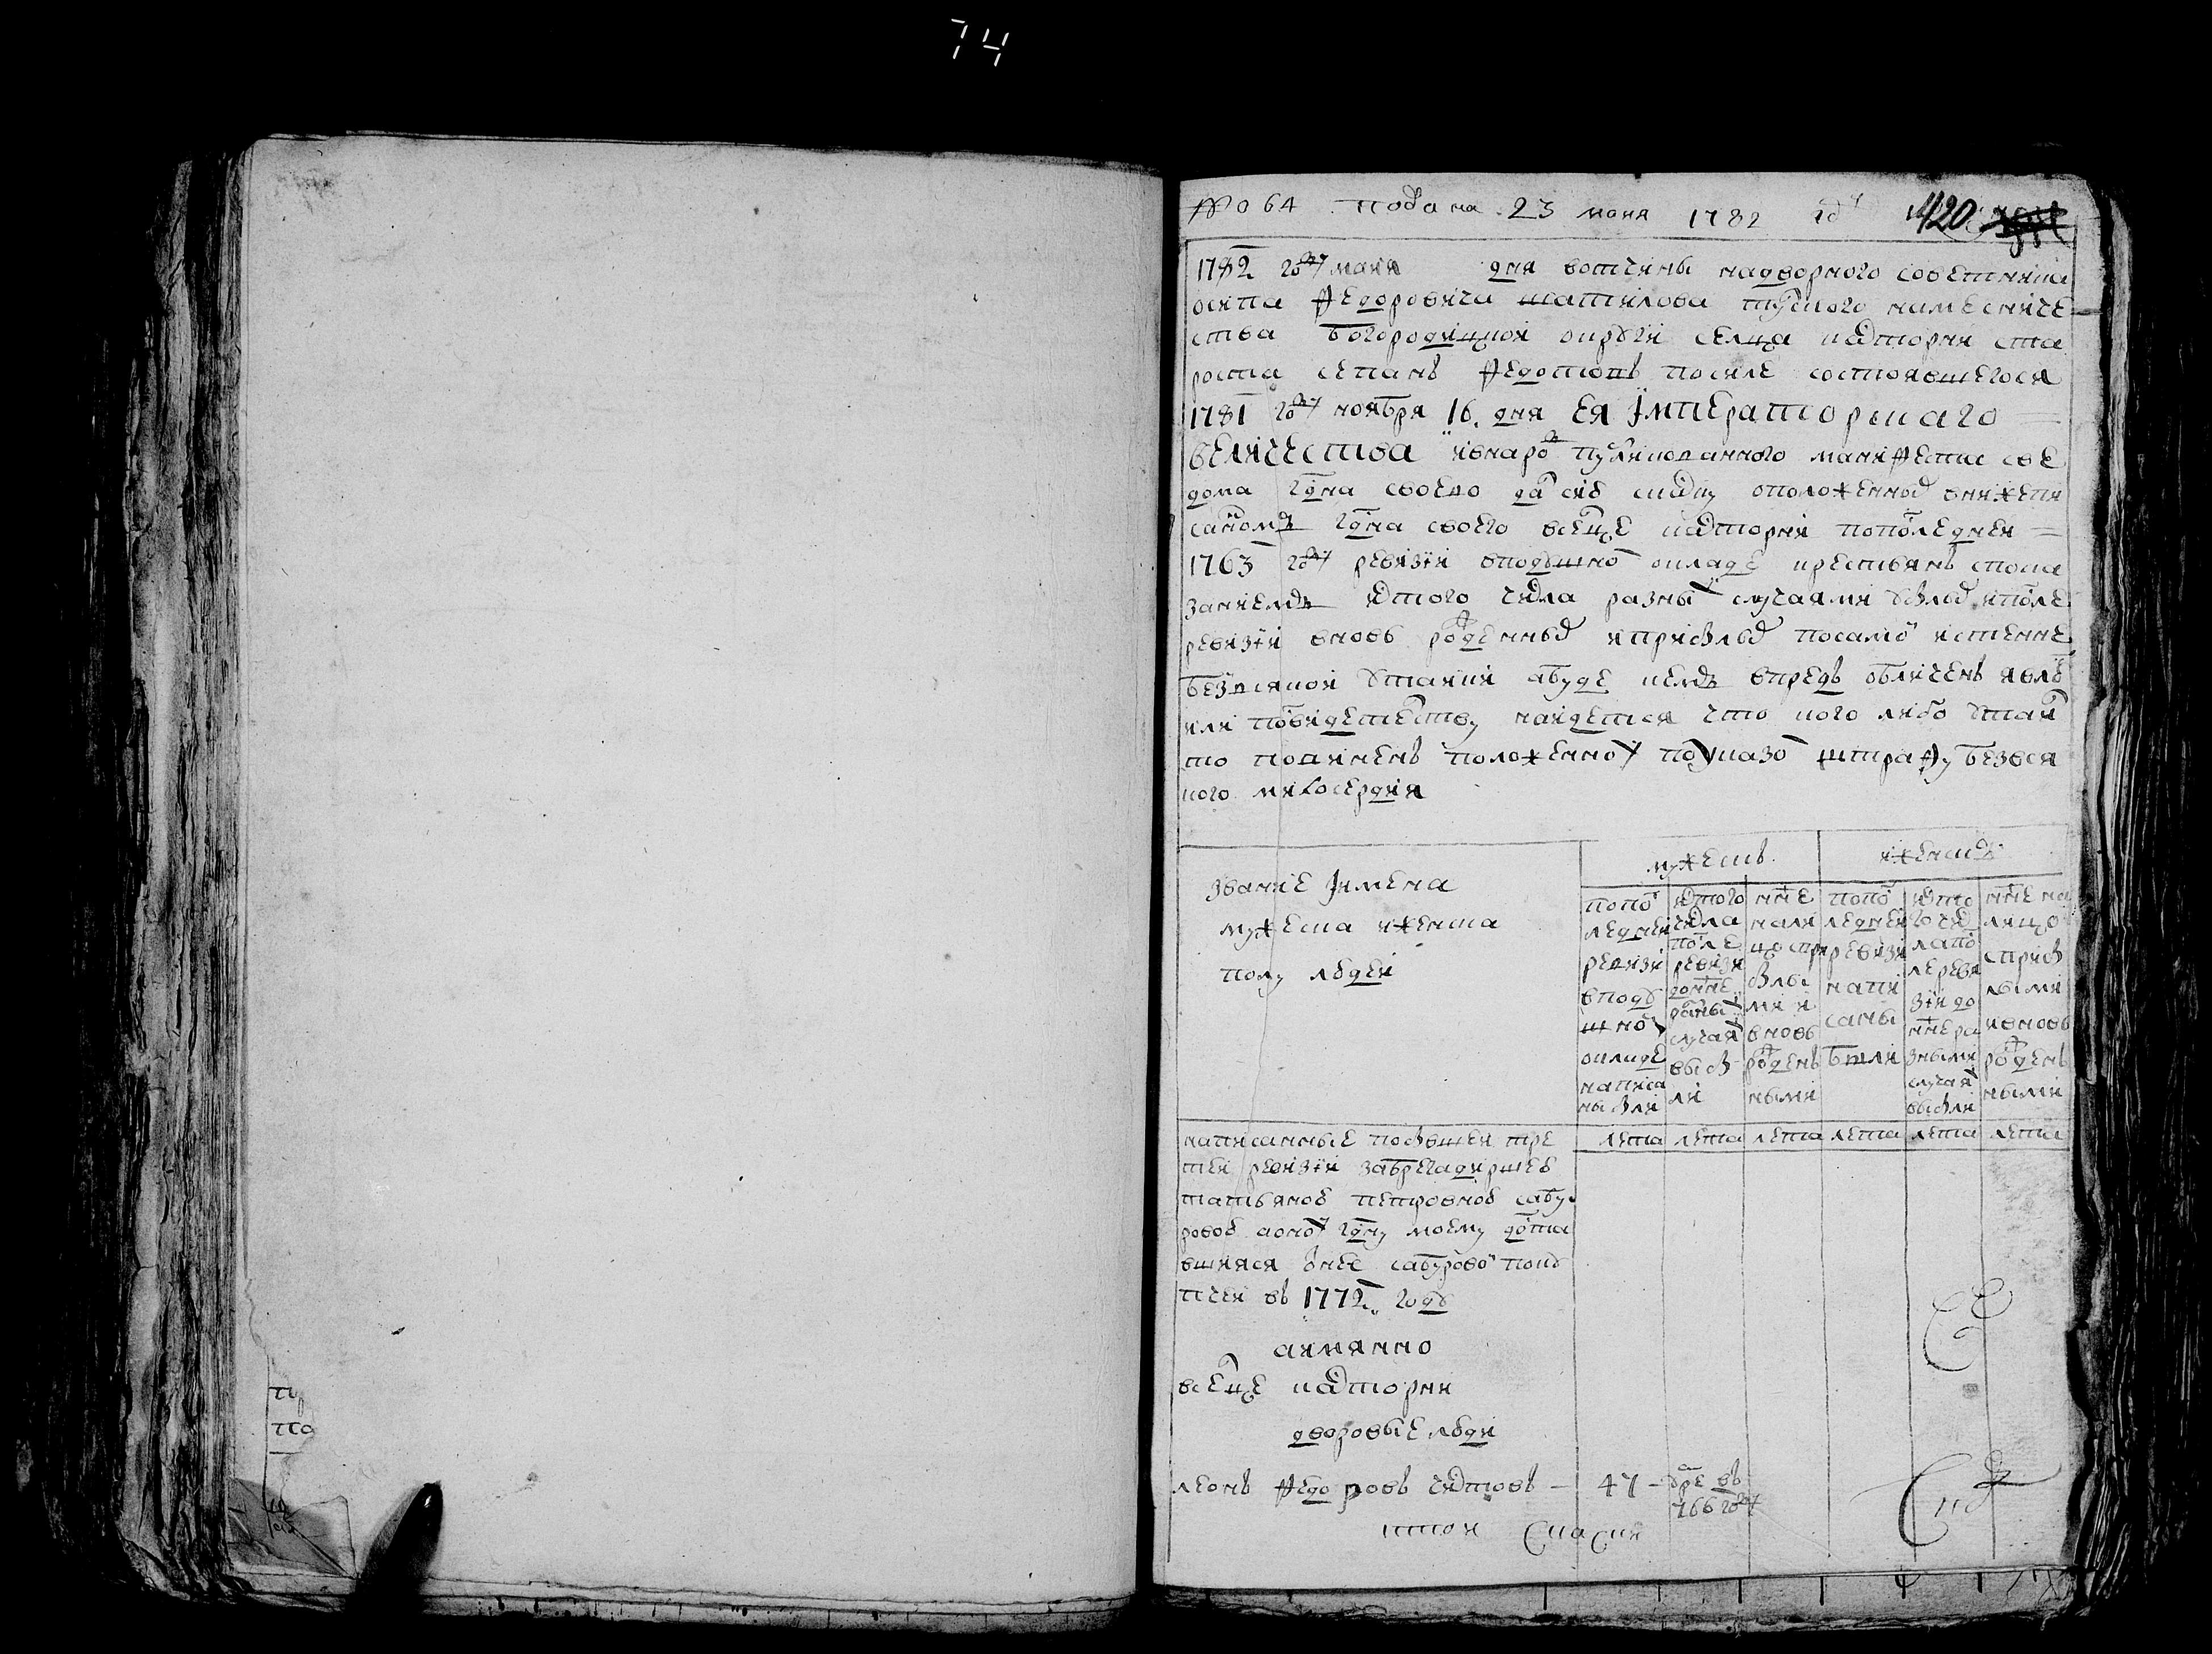 74
№ 64 подана 23 маия 1782 году 420
1782 году маия дня вотчины надворного советника
осипа федоровича шатилова тулского намесниче
ства богородицкой округи селца каторки ста
роста степанъ федотовъ после состоявшегося
1781 году ноября 16 дня ея императорскаго
величества и внарод публикованного манифеста све
дома гдна своего дал сию скаску оположенном внижеписанном
гдна своего вселце кастории попоследнеи
1763 году ревизии вподушном окладе крестьянъ спока
заниемъ истого числа разными случаями убылых ипосле
ревизии вновь рожденных иприбылых посамои истенне
безвсякой утаики абуде кемъ впредь обличенъ явлюсь
или посвидетелству наидется что кого либо утаил
то повиненъ положенному поуказом штрафу безвся
кого милосердия
звание имена
мужеска иженска
полу людей
мужескъ
иженска
попо
следнеи
ревизи
вподу
шном
окладе
написа
ны были
истого
числа
после
ревизи
доныне
разными
случаи
выбы
ли
ныне
нали
цо спри
были
ми и
вновь
рожденъ
ными
попо
следнеи
ревизи
напи
саны
были
исто
го чис
ла по
сле реви
зии до
ныне ра
зными
случаи
выбыли
ныне на
лицо
сприбы
лыми
ивновь
рожденъ
ными
написанные побывшеи тре
теи ревизии забрегадиршею
татьяною петровною сабу
ровою аоному гдну моему доста
вшияся унее сабуровой поку
пкеи въ 1772 году
лета лета лета лета лета лета
аимянно
вселце кастории
дворовые люди
леонъ федоровъ
47
умре въ
766 году